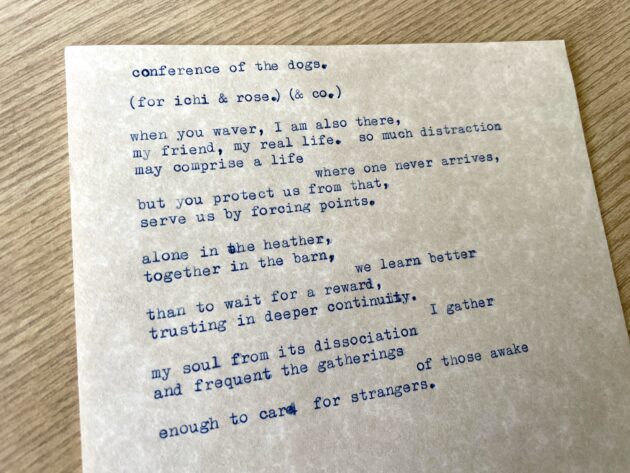 conference of the dogs.
(for ichi & rose.) (& co.)
when you waver, I am also there,
my friend, my real life. so much distraction
may comprise a life
where one never arrives,
but you protect us from that,
serve us by forcing points.
alone in the heather,
together in the barn,
we learn better
than to wait for a reward,
trusting in deeper continuity.
I gather
my soul from its dissociation
and frequent the gatherings
of those awake
enough to care for strangers.